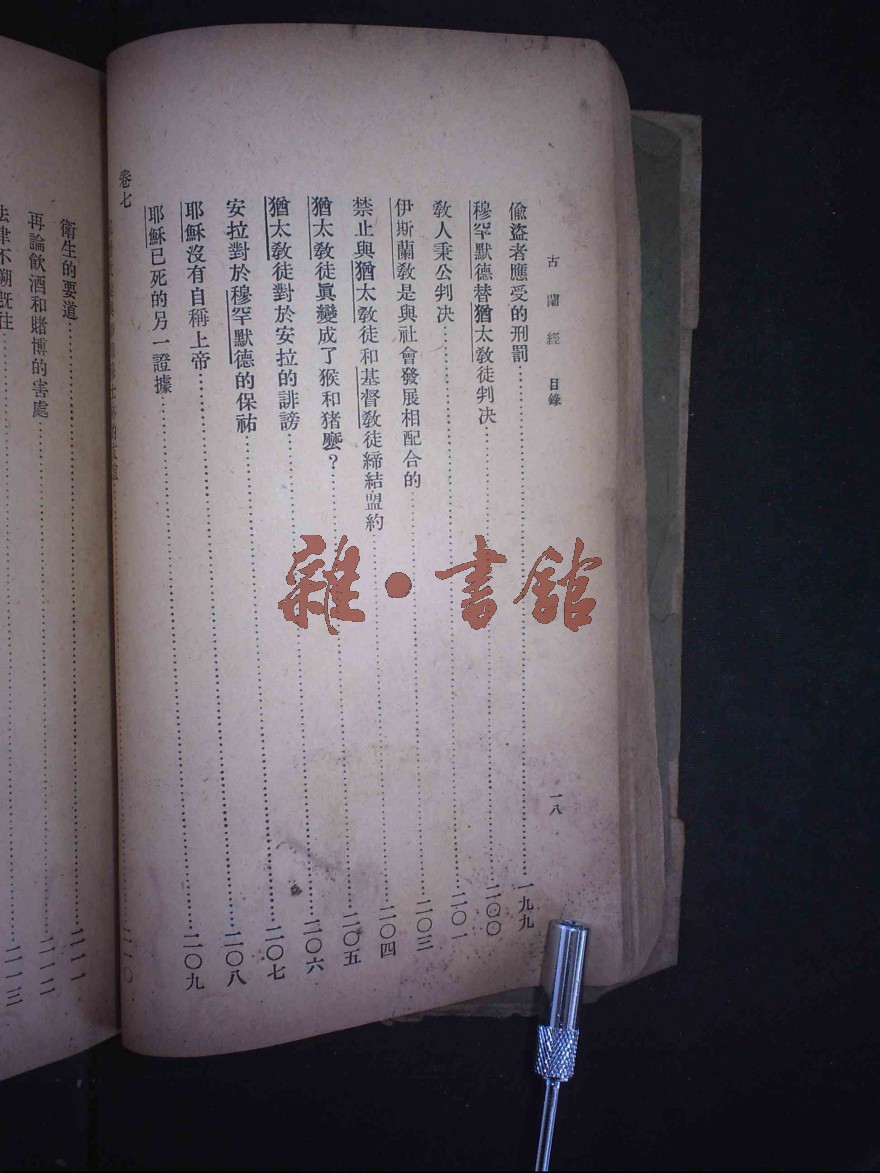 古蘭經 目錄 一八
偸盜者應受的刑罰……一九九
穆罕默德替猶太敎徒判决……二〇〇
敎人秉公判决……二〇一
伊斯蘭敎是與社會發展相配合的……二〇三
禁止與猶太敎徒和基督敎徒締結盟約……二〇四
猶太敎徒眞變成了猴和猪麽？……二〇五
猶太敎徒對於安拉的誹謗……二〇六
安拉對於穆罕默德的保祐……二〇七
耶穌沒有自稱上帝……二〇八
耶穌已死的另一證據……二〇九
卷七
……二一〇
衛生的要道……二一一
再論飮酒和賭博的害處……二一二
法律不溯旣往……二一三
雜·書館